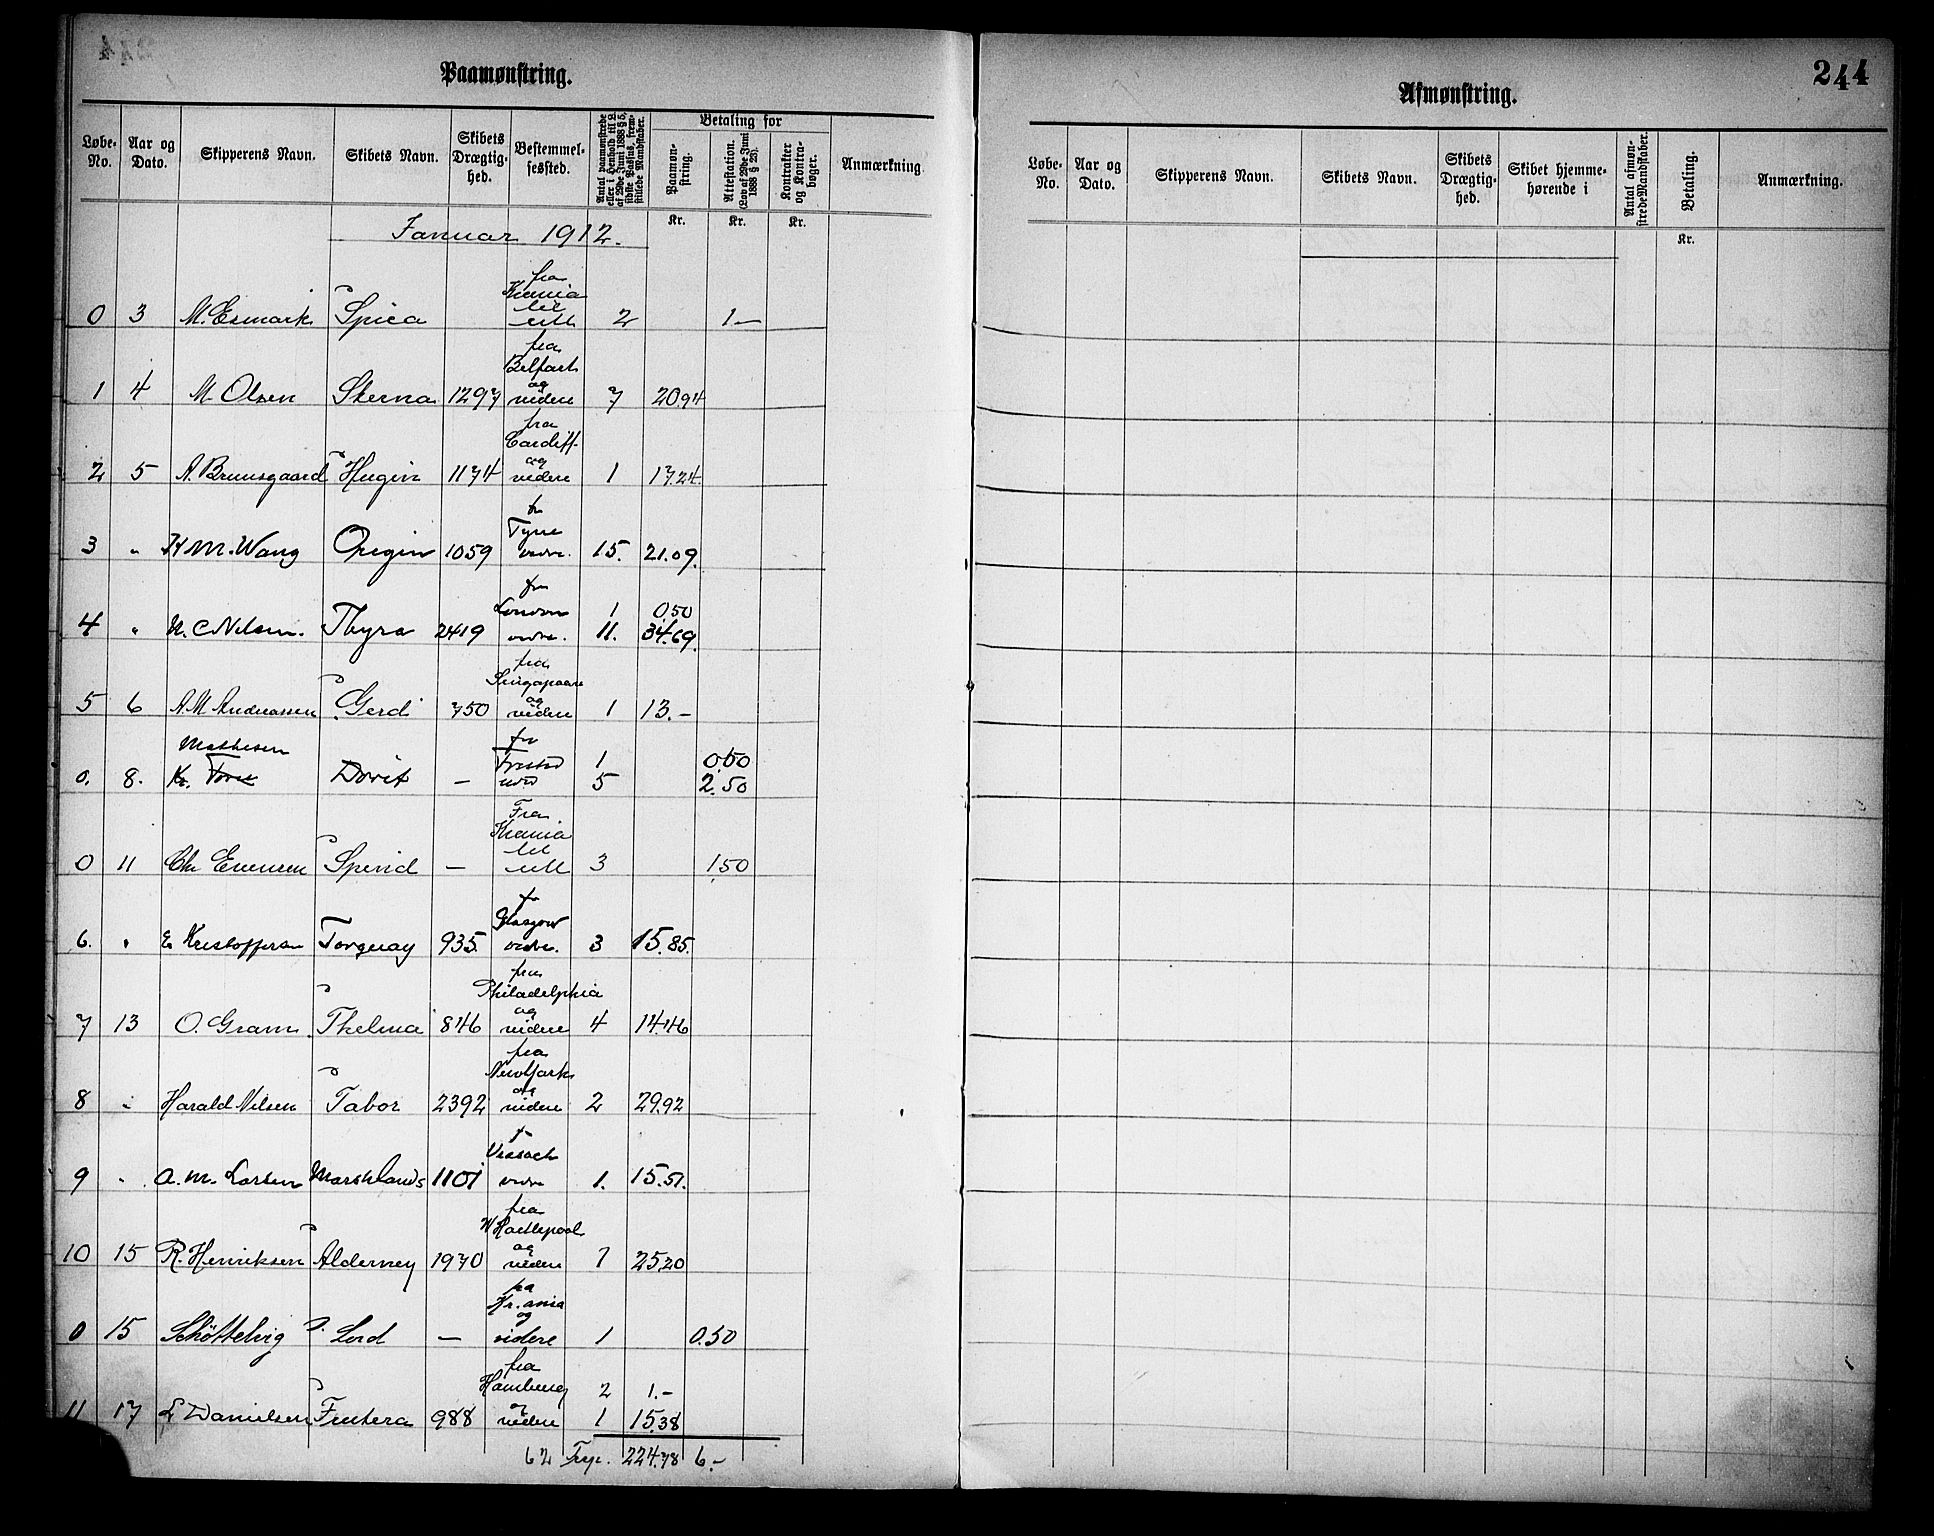 Paamønstring.
Løbe-No. Aar og Dato. Skipperens Navn. Skibets Navn. Skibets Drægtig-hed. Bestemmel-sessted. Antal paamønstrede eller i Henhold til L. af 29de Juni 1888 § 5, sidste Passus, frem-stillede Mandskaber. Betaling for Paamøn-string. Attestation. (Lov af 29de Juni 1888 § 23). Kontrakter og Kontra-bøger. Anmærkning
Kr. Kr. Kr.
Januar 1912.
0 3 M. Esmark Spica fra Krania til 2 1.—
1 4 M Olsen Sterna 1297 fra Belfast og videre 7 20.94
2 5 A. Bruusgaard Hugin 1174 fra Cardiff og videre 1 17.24
3 " K M. Wang Origin 1059 fr Tyne videre. 15. 21.09.
4 " N. C Nilsen. Thyra 2419 fra London videre. 1 0.50
11. 34.69.
5 6 A. M Andreassen Gerd 750 fra Singapore og videre 1 13.-
Mathesen
0. 8. Kr. Dovit — fra 1 0.50
5 2.50
0 11 Chr Evensen Spind — Fra Krania til 3 1.50
6. " E Kristoffersen Torquay 935. fr Glasgow videre. 3 15.85.
7 13 O. Gram Thelma 846 fra Philadelphia og videre 4 14.46
8 " Harald Nilsen Tabor 2392 fra New York og videre 2 29.92
9 " A. M. Larsen Marshlands 1101 videre 1. 15.51.
10 15 R. Henriksen Alderney 1970 fra W Hartlepool og videre 7 25.20
0 15 Schøttelvig Lord — fra Kr.ania og videre 1 0.50
11 17 L Danielsen Frutera 988 fra Hamburg og videre 2 1.-
1 15.38
62 Trp. 224.78 6.-
Afmønstring.
244
Løbe-No. Aar og Dato. Skipperens Navn. Skibets Navn. Skibets Drægtig-hed. Skibet hjemme-hørende i Antal afmøn-strede Mandskaber. Betaling. Anmærkning.
Kr.